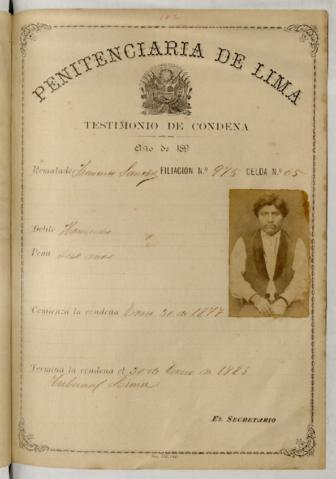 102
PENITENCIARIA DE LIMA
TESTIMONIO DE CONDENA
Año de 189
Rematado Francisco FILIACION N.° 975 CELDA N.° 65
Delito Homicidio
Pena seis años
Comienza la condena Enero 30 de 1877
Termina la condena el 30 de Enero de 1883
Tribunal Lima
EL SECRETARIO